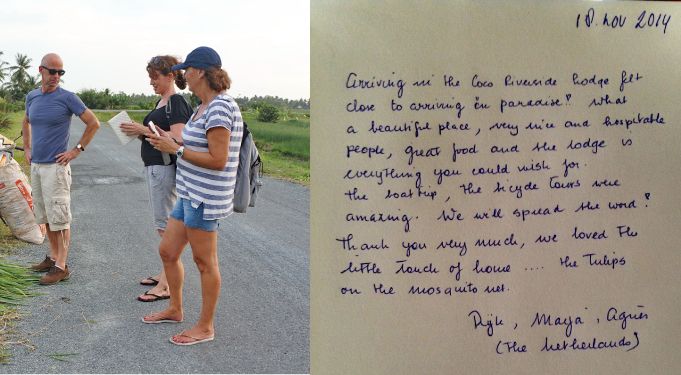 18. nov 2014
Arriving in the Coco Riverside Lodge felt
close to arriving in paradise! What
a beautiful place, very nice and hospitable
people, great food and the lodge is
everything you could wish for.
the boattrip, the bicycle tours were
amazing. We will spread the word!
Thank you very much, we loved the
little touch of home .... the Tulips
on the mosquito net.
Maya, Agnès
(the Netherlands)